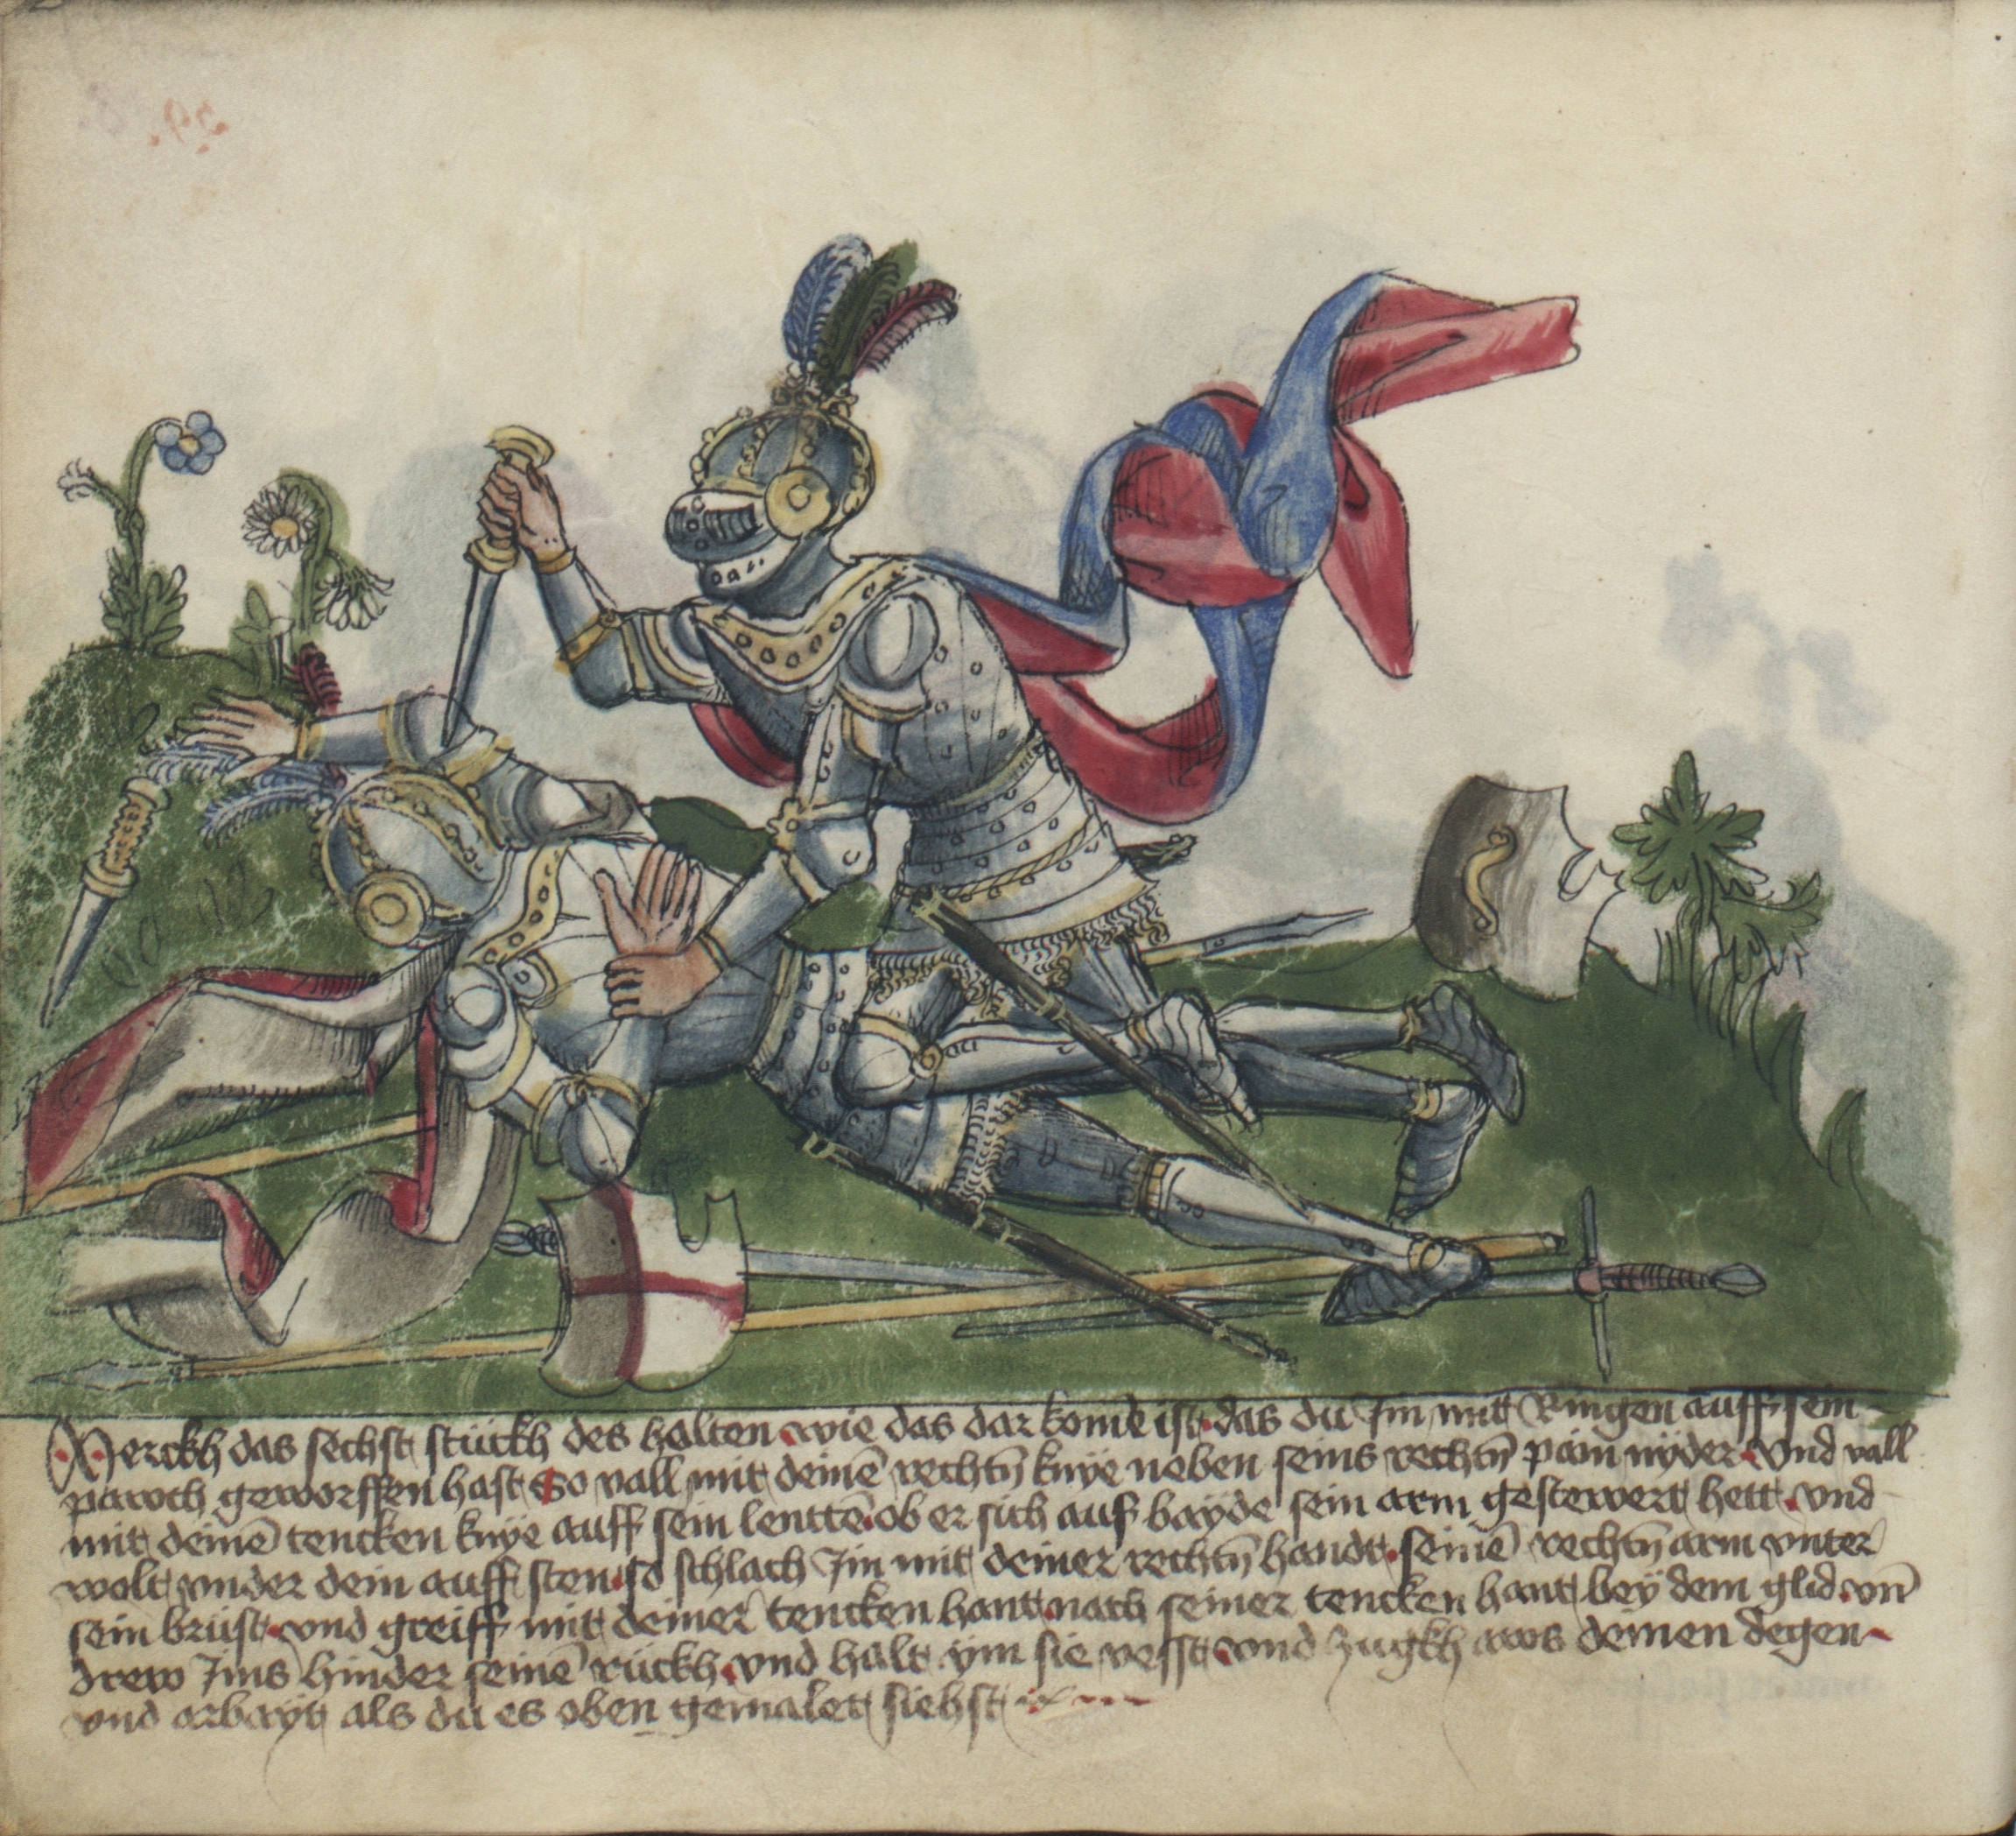 Merckh das sechst stückh des halten wie das dar komē ist das du Im mitt Ringen auff sein
pawch geworffen hast So vall mit deinē rechtn̄ knÿe neben seins rechtn̄ pain nÿder vnd vall
mit deinē tencken knÿe auff sein lenttē ob er sich auf baÿde sein arm gestewert hett vnd
wolt vnder dein auff sten so schlach Im mit deiner rechtn̄ handt seinē rechtn̄ arm vnter
sein brüst vnd greiff mit deiner tencken hant nach seiner tencken hant beÿ dem glid vn̄
drew Ims hinder seinē rückh vnd halt ÿm sie vesst vnd zugkh aws deinen degen
vnd arbaÿt als du es oben gemalet siehst